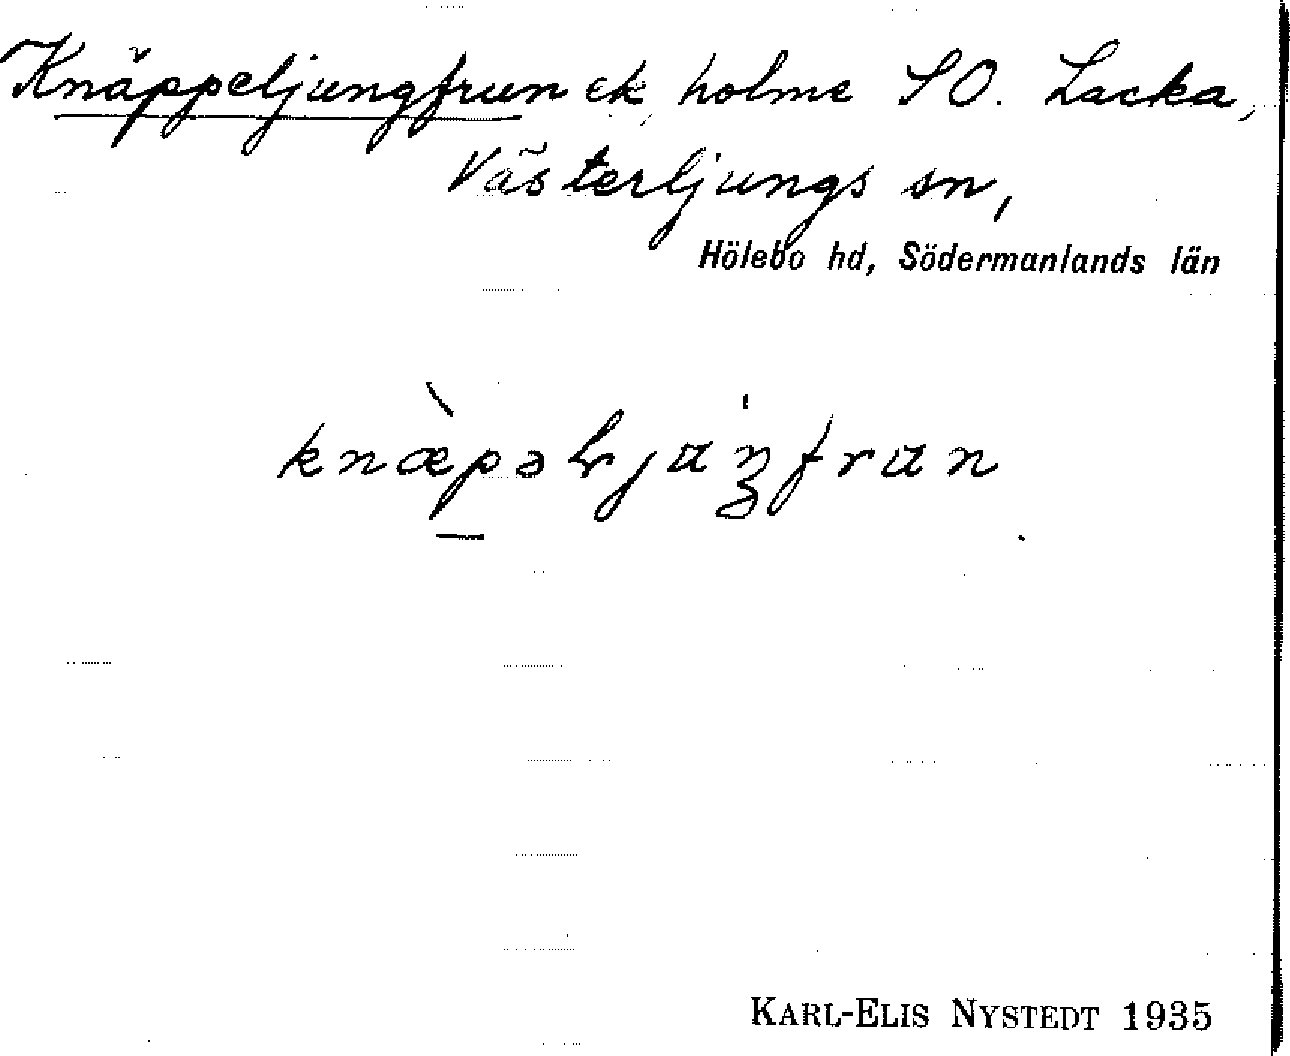 Knäppeljungfrun ek, holme SO. Lacka,
Västerljungs sn,
Hölebo hd, Södermanlands län
KARL-ELIS NYSTEDT 1935